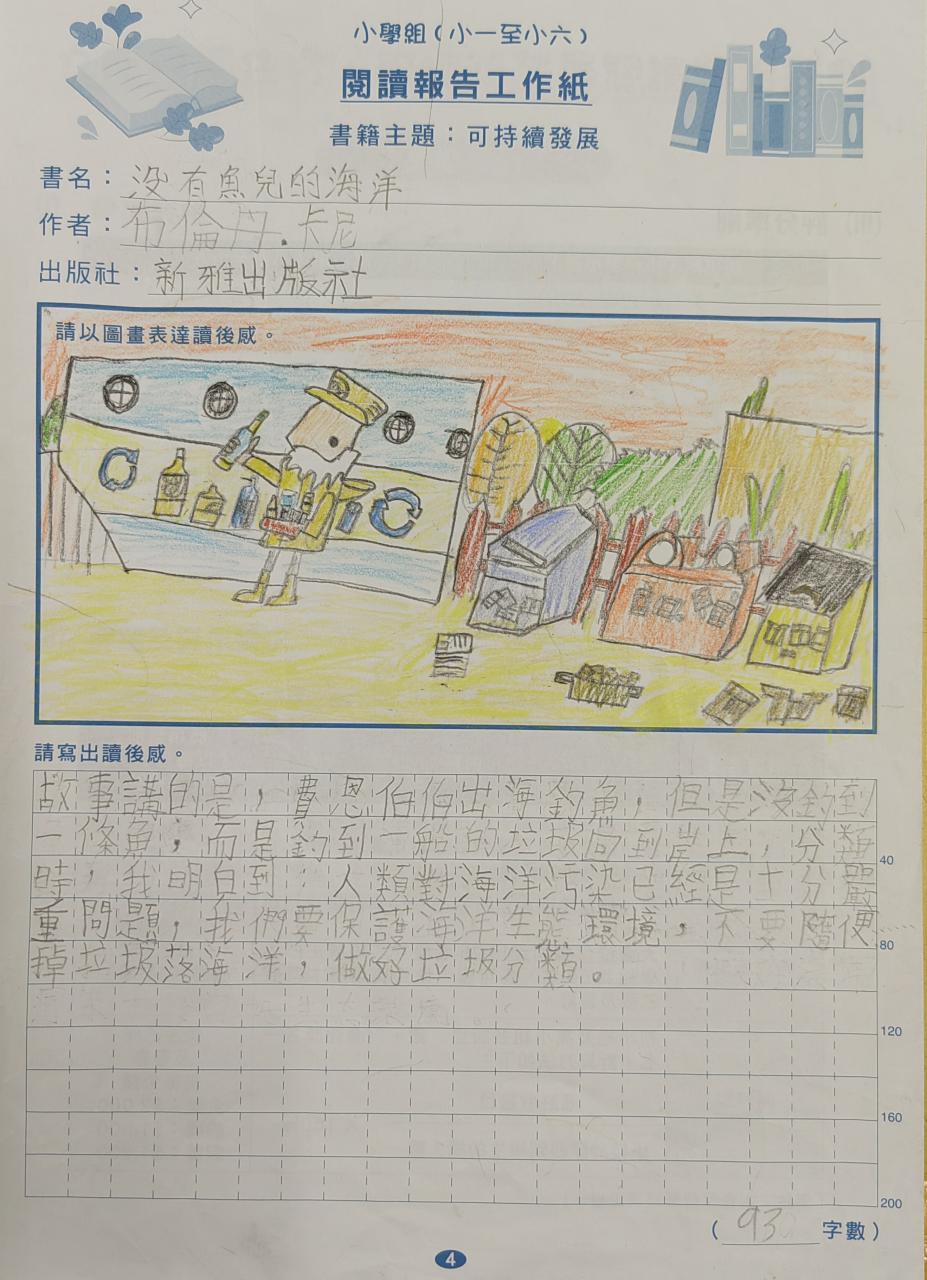 小學組(小一至小六)
閱讀報告工作紙
書籍主題:可持續發展
書名:没有魚兒的海洋
作者:布倫丹.卡尼
出版社:新雅出版社
請以圖畫表達讀後感。
請寫出讀後感。
故事講的是,費恩伯伯出海釣魚,但是没釣到
一條魚,而是釣到一船的垃圾回到岸上,分類
40
時,我明白到:人類對海洋污染已經是十分嚴
重問題,我們要保護海洋生態環境,不要隨便
80
掉垃圾落海洋,做好垃圾分類。
120
160
200
(93字數)
4